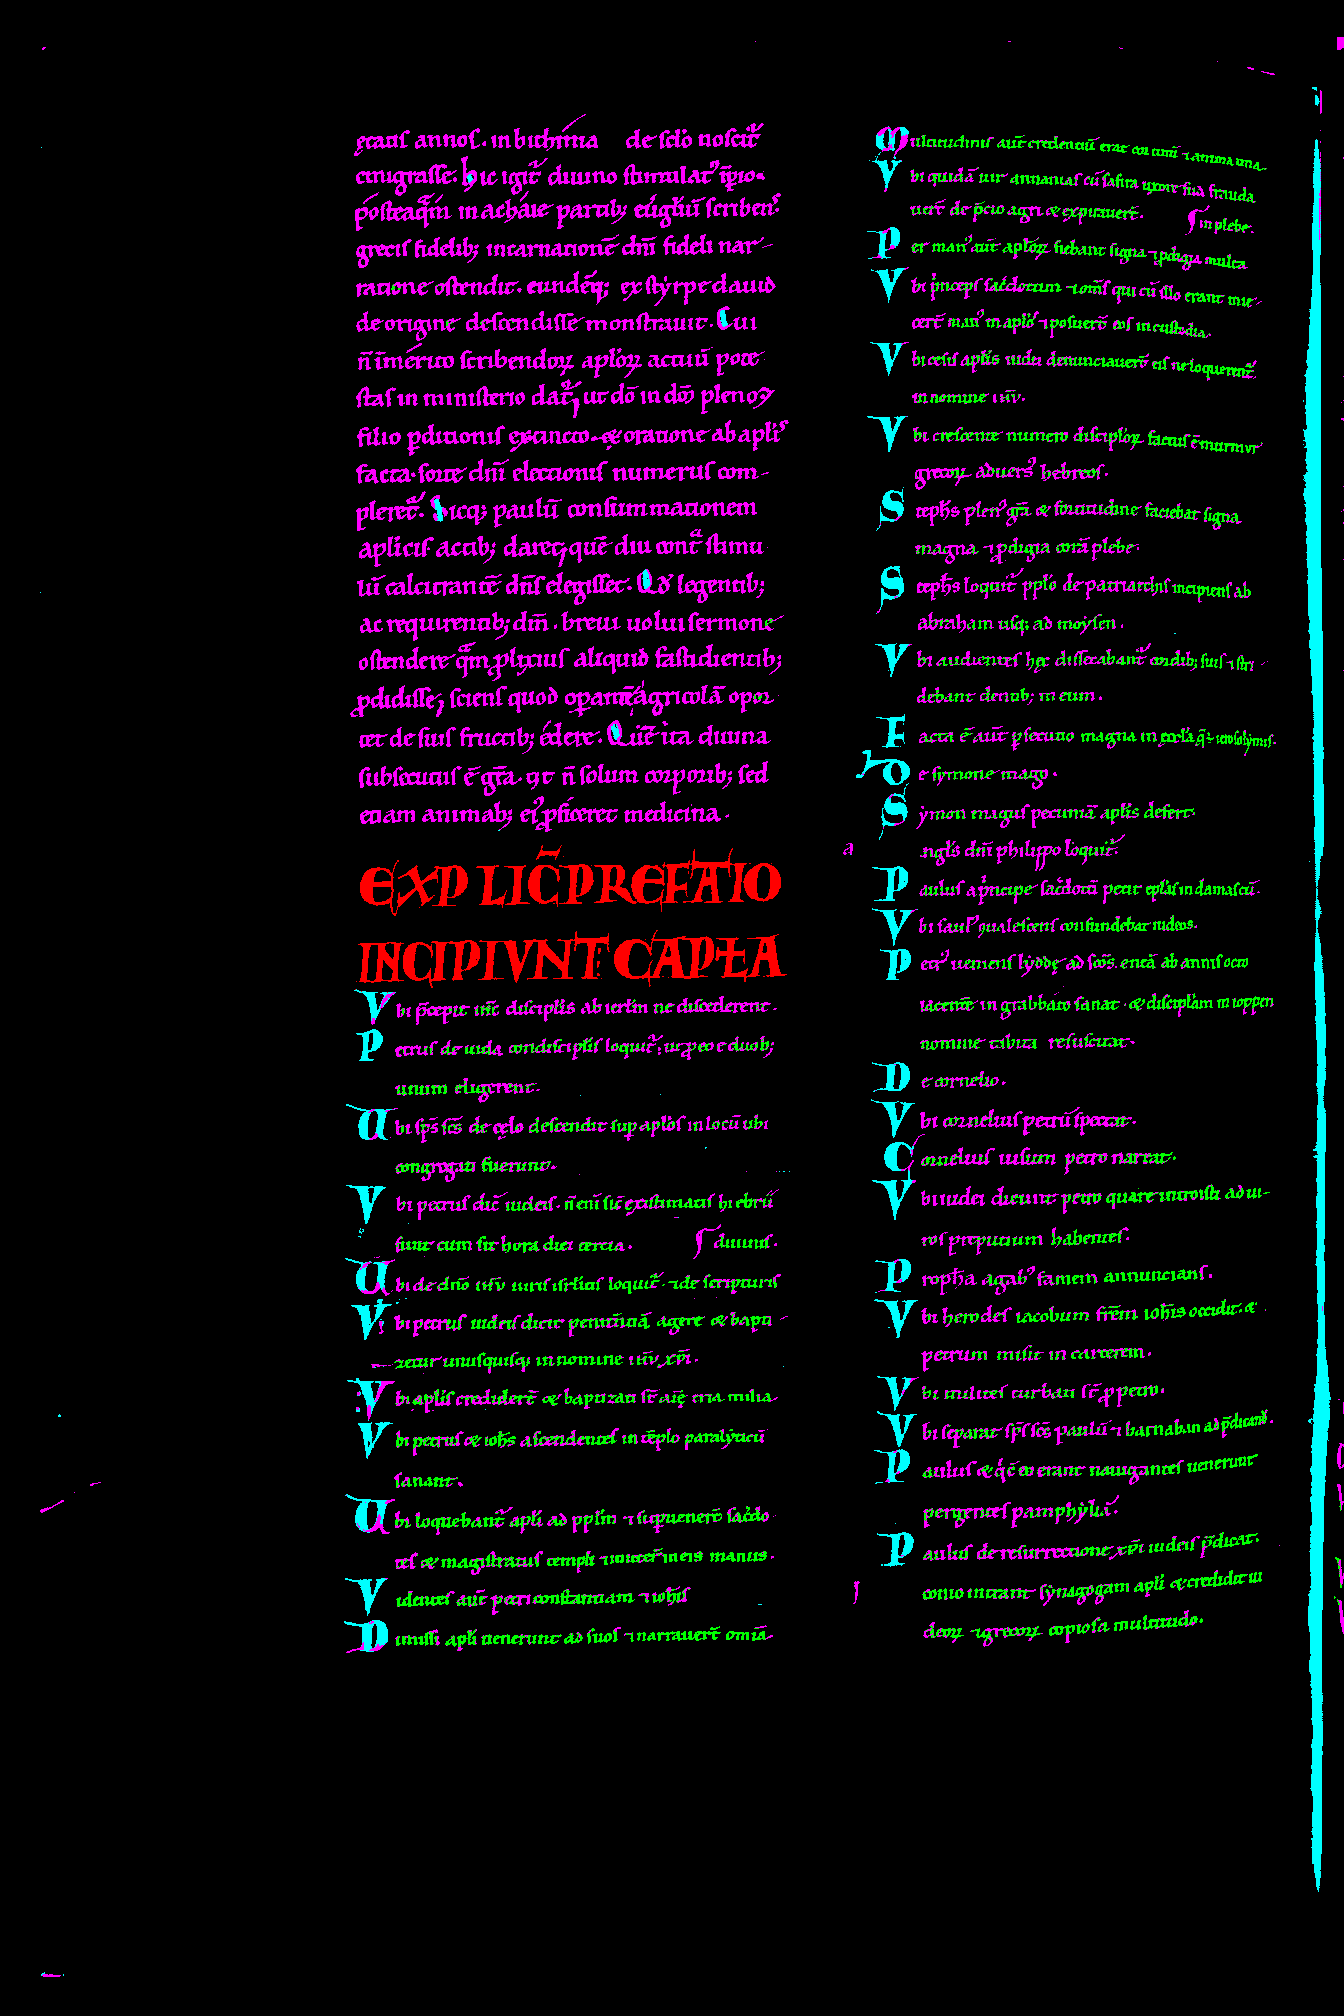 etatis annos. in bithinia de sclo noscit᷑
emigrasse. hic igit᷑ diuino stimulat᷒ sp̅io.
posteaq̅m in achaie partib; eu̅gliu̅ scriben᷒
grecis fidelib; incarnatione̅ dni̅ fideli nar-
ratione ostendit. eunde̅q; ex styrpe dauid
de origine descendisse monstrauit. Cui
n̅ i̅merito scribendoꝝ aplo̅ꝝ actuu̅ pote
stas in ministerio dat᷑, ut do̅ in do̅ pleno ⁊
filio ꝑditionis extincto. & oratione ab apl̅is
facta. sorte dni̅ electionis numerus com-
pleret᷑. Sicq; paulu̅ consummationem
aplicis actib; daret, que̅ diu cont᷑ stimu
lu̅ calcitrante̅ dn̅s elegisset. Qd̅ legentib;
ac requirentib; dm̅. breui uolui sermone
ostendere q̅m ꝓlixius aliquid fastidientib;
ꝓdidisse, sciens quod oꝑante̅ agricola̅ opor
tet de suis fructib; edere. Que̅ ita diuina
subsecuta e̅ gra̅. ut n̅ solum corporib; sed
etiam animab; ei᷒ ꝓficeret medicina.
EXPLIC̅ PREFATIO
INCIPIVNT CAPŁA
Vbi p̅cepit ih̅c discipl̅is ab ierl̅m ne discederent.
Petrus de iuda condiscipl̅is loquit᷑; ut ꝓ eo e duob;
unum eligerent.
Ubi sp̅s sc̅s de cęlo descendit sup aplo̅s in locu̅ ubi
congregati fuerunt.
Vbi petrus dic̅ iudeis. n̅ eni̅ sic̅ existimatis hi ebrii
sunt cum sit hora diei tercia. diuinis.
Ubi de dn̅o ih̅v uiris isrl̅itis loquit᷑. ⁊ de scripturis
Vbi petrus iudeis dicit penitentia̅ agere & bapti-
zetur unusquisq; in nomine ih̅v xp̅i.
Vbi apl̅is credider̅t & baptizati st̅ aię tria milia.
Vbi petrus & ioh̅s ascendentes in te̅plo paralyticu̅
sanant.
Ubi loquebant᷑ apl̅i ad ppl̅m ⁊ sup̅uener̅t sac̅do
tes & magistratus templi ⁊ iniecer̅ in eis manus.
Videntes aut̅ petri constantiam ⁊ ioh̅is
Dimissi apl̅i uenerunt ad suos ⁊ narrauer̅t omia̅.
Multitudinis aut̅ credentiu̅ erat cor unu̅ ⁊ anima una.
Vbi quida̅ uir annanias cu̅ safira uxore sua frauda
uer̅t de p̅cio agri & expirauer̅t. in plebe.
Per man᷒ aut̅ aplo̅ꝝ fiebant signa ⁊ ꝓdigia multa
Vbi p̅nceps sac̅dotum ⁊ om̅s qui cu̅ illo erant inie-
cer̅t man᷒ in aplo̅s ⁊ posuer̅t eos in custodia.
Vbi cesis apl̅is iudei denunciauer̅t eis ne loquerent᷑
in nomine ih̅v.
Vbi crescente numero discipl̅oꝝ factus e̅ murmur
grecoꝝ aduers᷒ hebreos.
Steph̅s plen᷒ gra̅ & fortitudine faciebat signa
magna ⁊ ꝓdigia cora̅ plebe.
Steph̅s loquit᷑ ppl̅o de patriarchis incipiens ab
abraham usq; ad moysen.
Vbi audientes hęc dissecabant᷑ cordib; suis ⁊ stri-
debant dentib; in eum.
Facta e̅ aut̅ ꝑsecutio magna in eccl̅a q̅ ⁊ ierosolymis.
De symone mago.
Symon magus pecunia̅ apl̅is defert.
angl̅s dni̅ philippo loquit᷑.
Paulus a p̅ncipe sac̅dotu̅ petit epl̅as in damascu̅.
Vbi saul᷒ conualescens confundebat iudeos.
Petr᷒ ueniens lyddę ad sc̅os. enea̅ ab annis octo
iacente̅ in grabbato sanat. & discipl̅am in ioppen
nomine tabita resuscitat.
De cornelio.
Vbi cornelius petru̅ spectat.
Cornelius uisum petro narrat.
Vbi iudei dicunt petro quare introisti ad ui-
ros preputium habentes.
Proph̅a agab᷒ famem annuncians.
Vbi herodes iacobum fr̅em ioh̅is occidit. &
petrum misit in carcerem.
Vbi milites turbati st̅ ꝓ petro.
Vbi separat sp̅s sc̅s paulu̅ ⁊ barnaban ad p̅dicand̅.
Paulus & q̅ cu̅ eo erant nauigantes uenerunt
pergentes pamphylia̅.
Paulus de resurrectione xp̅i iudeis p̅dicat.
conio intrant synagogam apl̅i & credidit iu
deoꝝ ⁊ grecoꝝ copiosa multitudo.